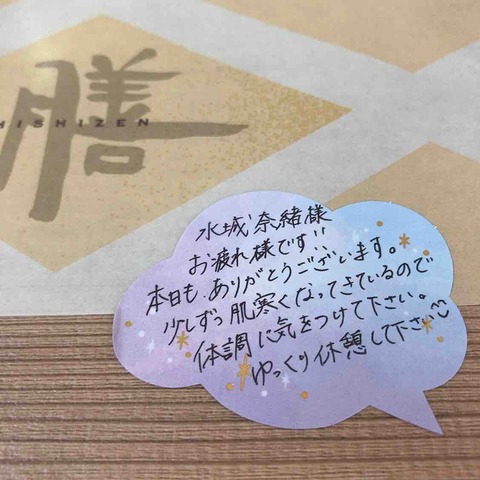 膳
HISHIZEN
水城奈緒様
お疲れ様です!!
本日も、ありがとうございます。
少しずつ肌寒くなってきているので
体調に気をつけて下さい。
ゆっくり休憩して下さい